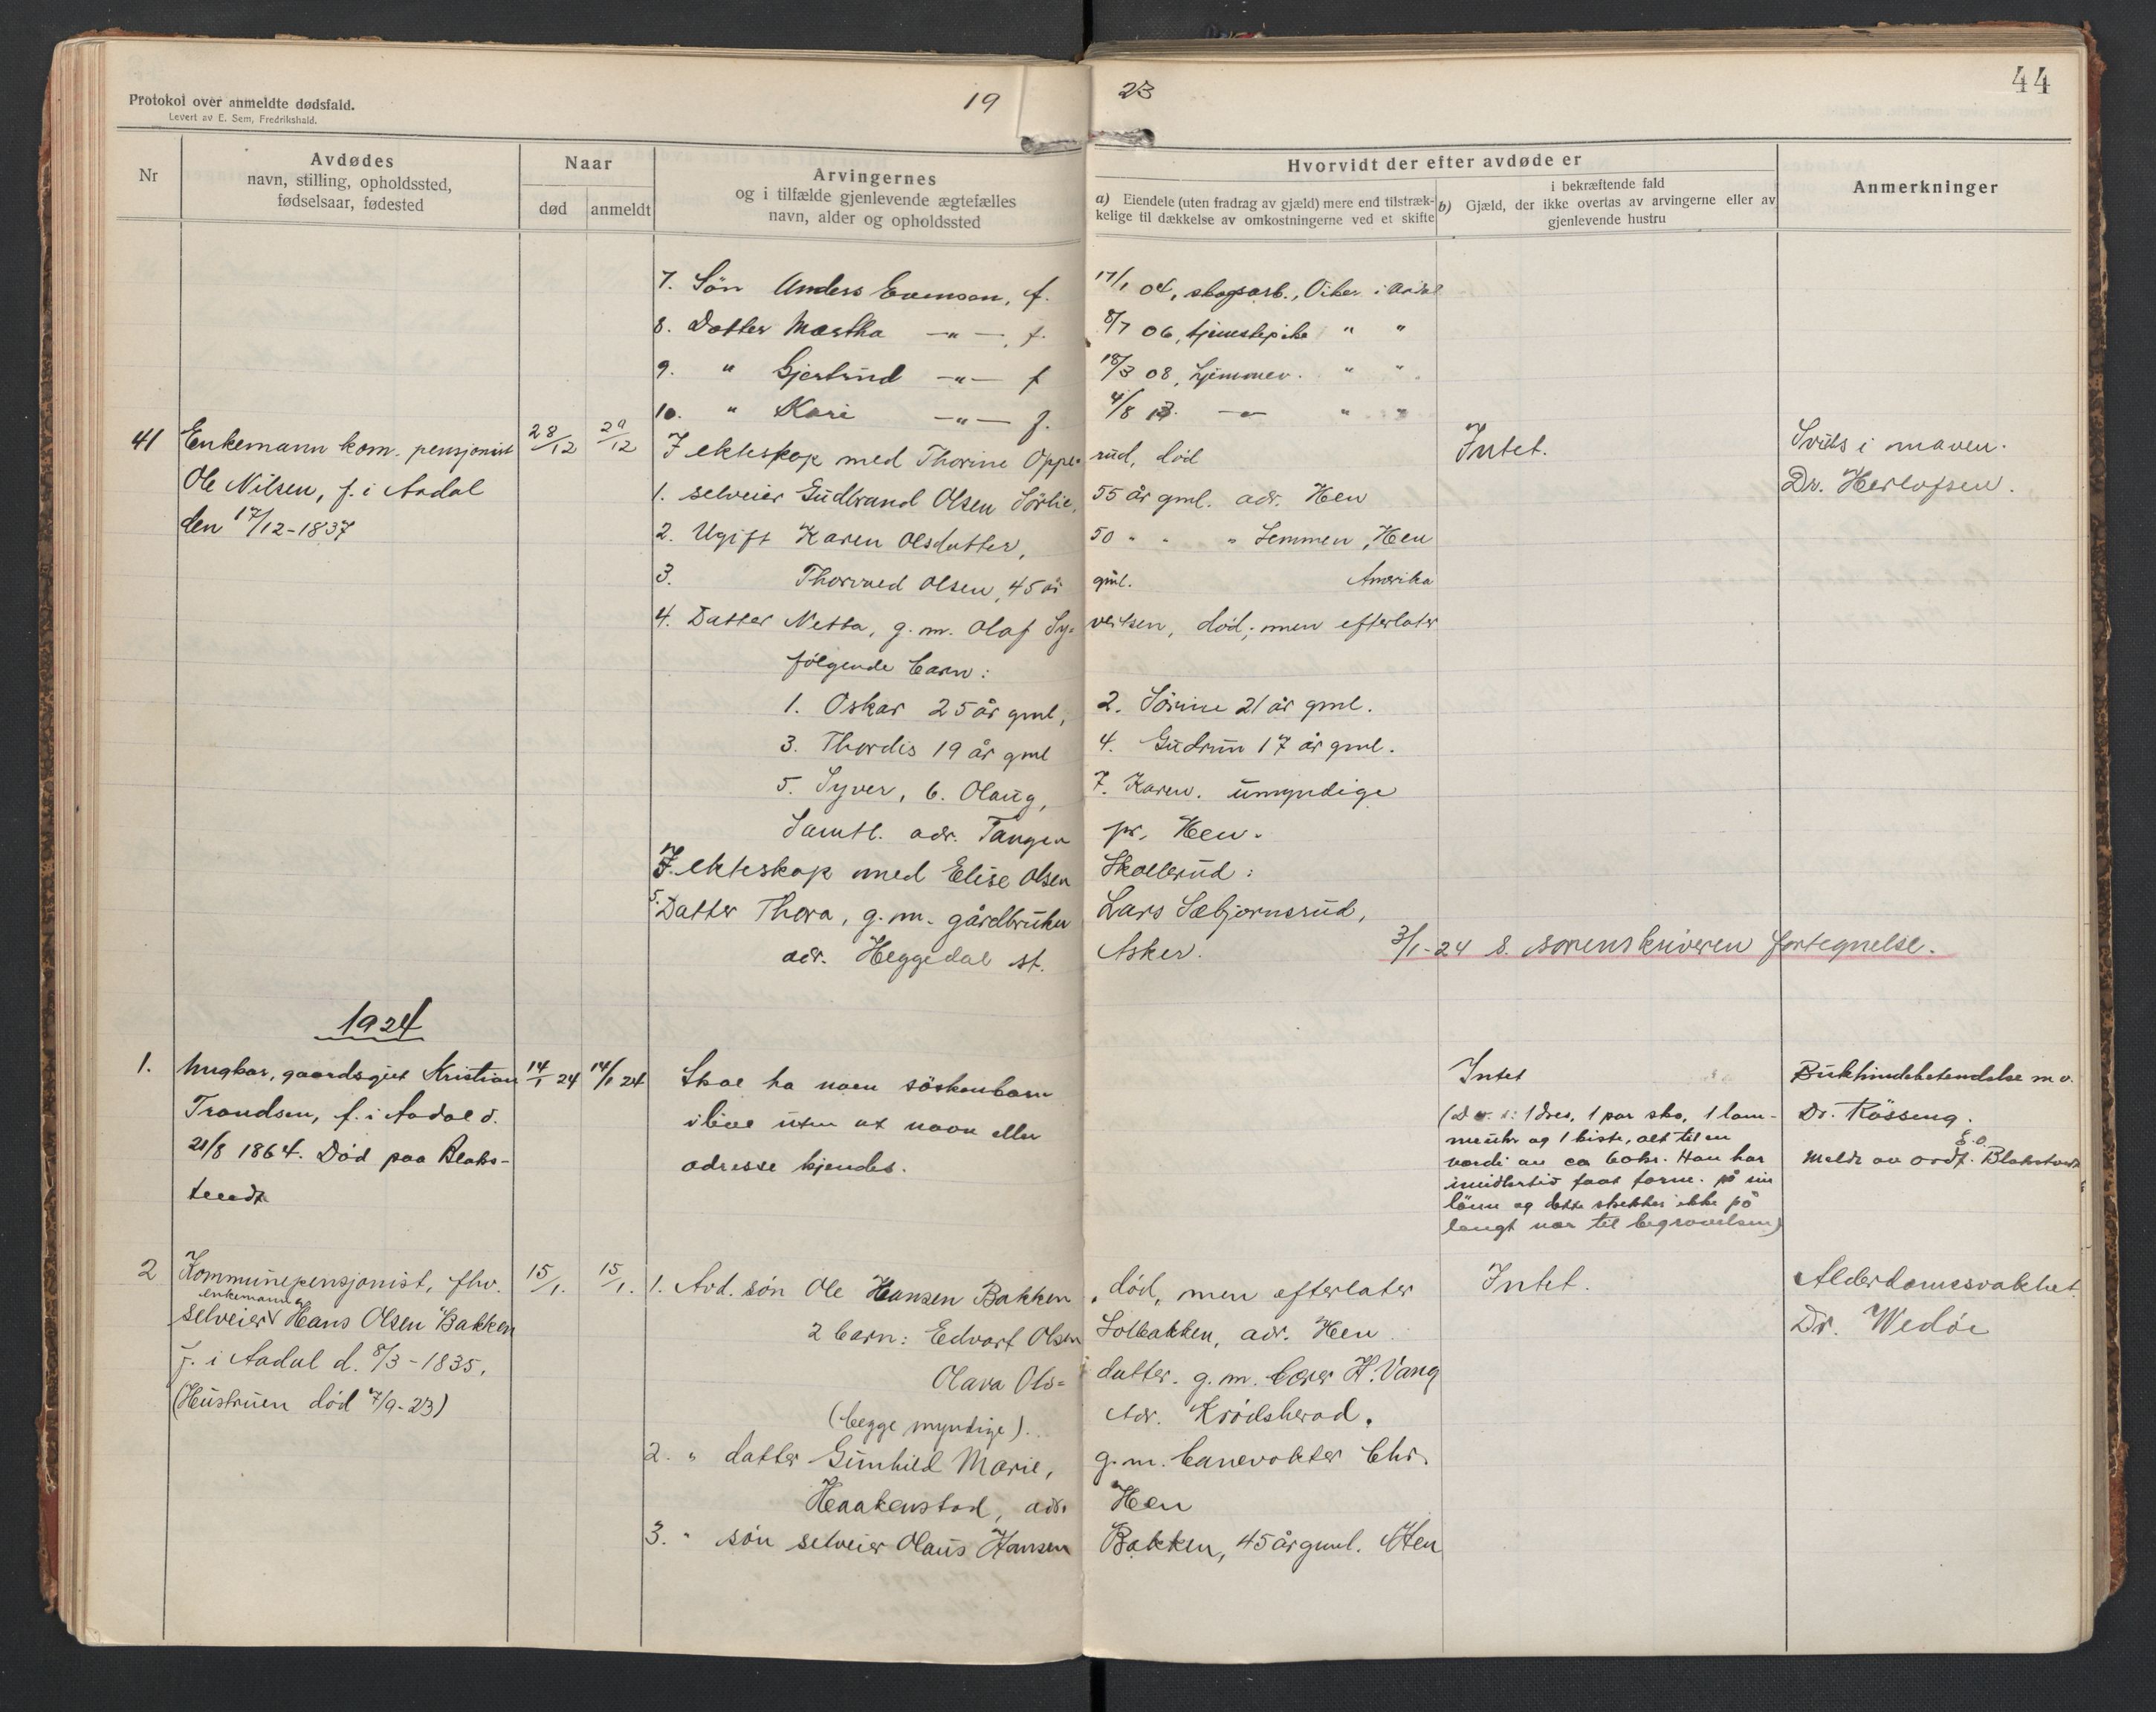 Protokol over anmeldte dødsfald.
Levert av E. Sem, Fredrikshald.
19 23
44
Nr
Avdødes
navn, stilling, opholdssted,
fødselsaar, fødested
Naar
død anmeldt
Arvingernes
og i tilfælde gjenlevende ægtefælles
navn, alder og opholdssted
Hvorvidt der efter avdøde er
a) Eiendele (uten fradrag av gjæld) mere end tilstræk-
kelige til dækkelse av omkostningerne ved et skifte
i bekræftende fald
b) Gjæld, der ikke overtas av arvingerne eller av
gjenlevende hustru
Anmerkninger
7. Sön Anders Evensen, f. 17/1 04, skogsarb., Viker i Aadal
8. Datter Martha -"-, f. 8/7 06, tjenestepike " "
9. " Gjertrud -"- f 18/3 08, hjemmev. " "
10. " Kari -"- f. 4/8 13. -"- " "
41 Enkemann kom. pensjonist
Ole Nilsen, f. i Aadal
den 17/12-1837
28/12 29/12
I ekteskap med Thorine Oppe= rud, död
1. selveier Gudbrand Olsen Sörlie, 55 år gml. adr. Hen
2. Ugift Karen Olsdatter, 50 " " " Semmen, Hen
3. Thorvald Olsen, 45 år gml. Amerika
4. Datter Netta, g.m. Olaf Sy= vertsen, död, men efterlater
følgende barn:
1. Oskar 25 år gml, 2. Sörine 21 år gml.
3. Thordis 19 år gml 4. Gudrun 17 år gml.
5. Syver, 6. Olaug, 7. Karen. umyndige
Samtl. adr. Tangen pr. Hen.
I ekteskap med Elise Olsen Skollerud:
5. Datter Thora, g.m. gårdbruker Lars Sæbjørnsrud,
adr. Heggedal st. Asker.
Intet.
Svuls i maven.
Dr. Herlofsen.
3/1-24 s. sorenskriveren fortegnelse.
1924
1. Ungkar, gaardsgut Kristian
Trondsen, f. i Aadal d.
21/8 1864. Död paa Blaks-
tvedt
14/1 24 14/1 24
Skal ha noen söskenbarn
ilive uten at navn eller
adresse kjendes.
Intet
(D.v.s: 1 dres, 1 par sko, 1 lom-
meuhr og 1 kiste, alt til en
verdi av ca 60 kr. Han har
imidlertid faat forne. på sin
lönn og dette strekker ikke på
langt nær til begravelsen)
Bukhindebetendelse m.v.
Dr. Kösseng.
Meldt av ordf. E.O. Blakstvedt
2 Kommunepensjonist, fhv.
enkemann
selveier Hans Olsen Bakken
f. i Aadal d. 8/3-1835.
(Hustruen död 7/9-23)
15/1. 15/1.
1. Avd. sön Ole Hansen Bakken, död, men efterlater
2 barn: Edvart Olsen Solbakken, adr. Hen
Olava Ols= datter. g.m. H. Vang
(begge myndige). Adr. Krödsherad.
2. " datter Gunhild Marie, g.m. banevokter Chr.
Haakenstad, adr. Hen
3. " sön selveier Olaus Hansen Bakken, 45 år gml. Hen
Intet.
Alderdomssvakhet.
Dr. Wedöe